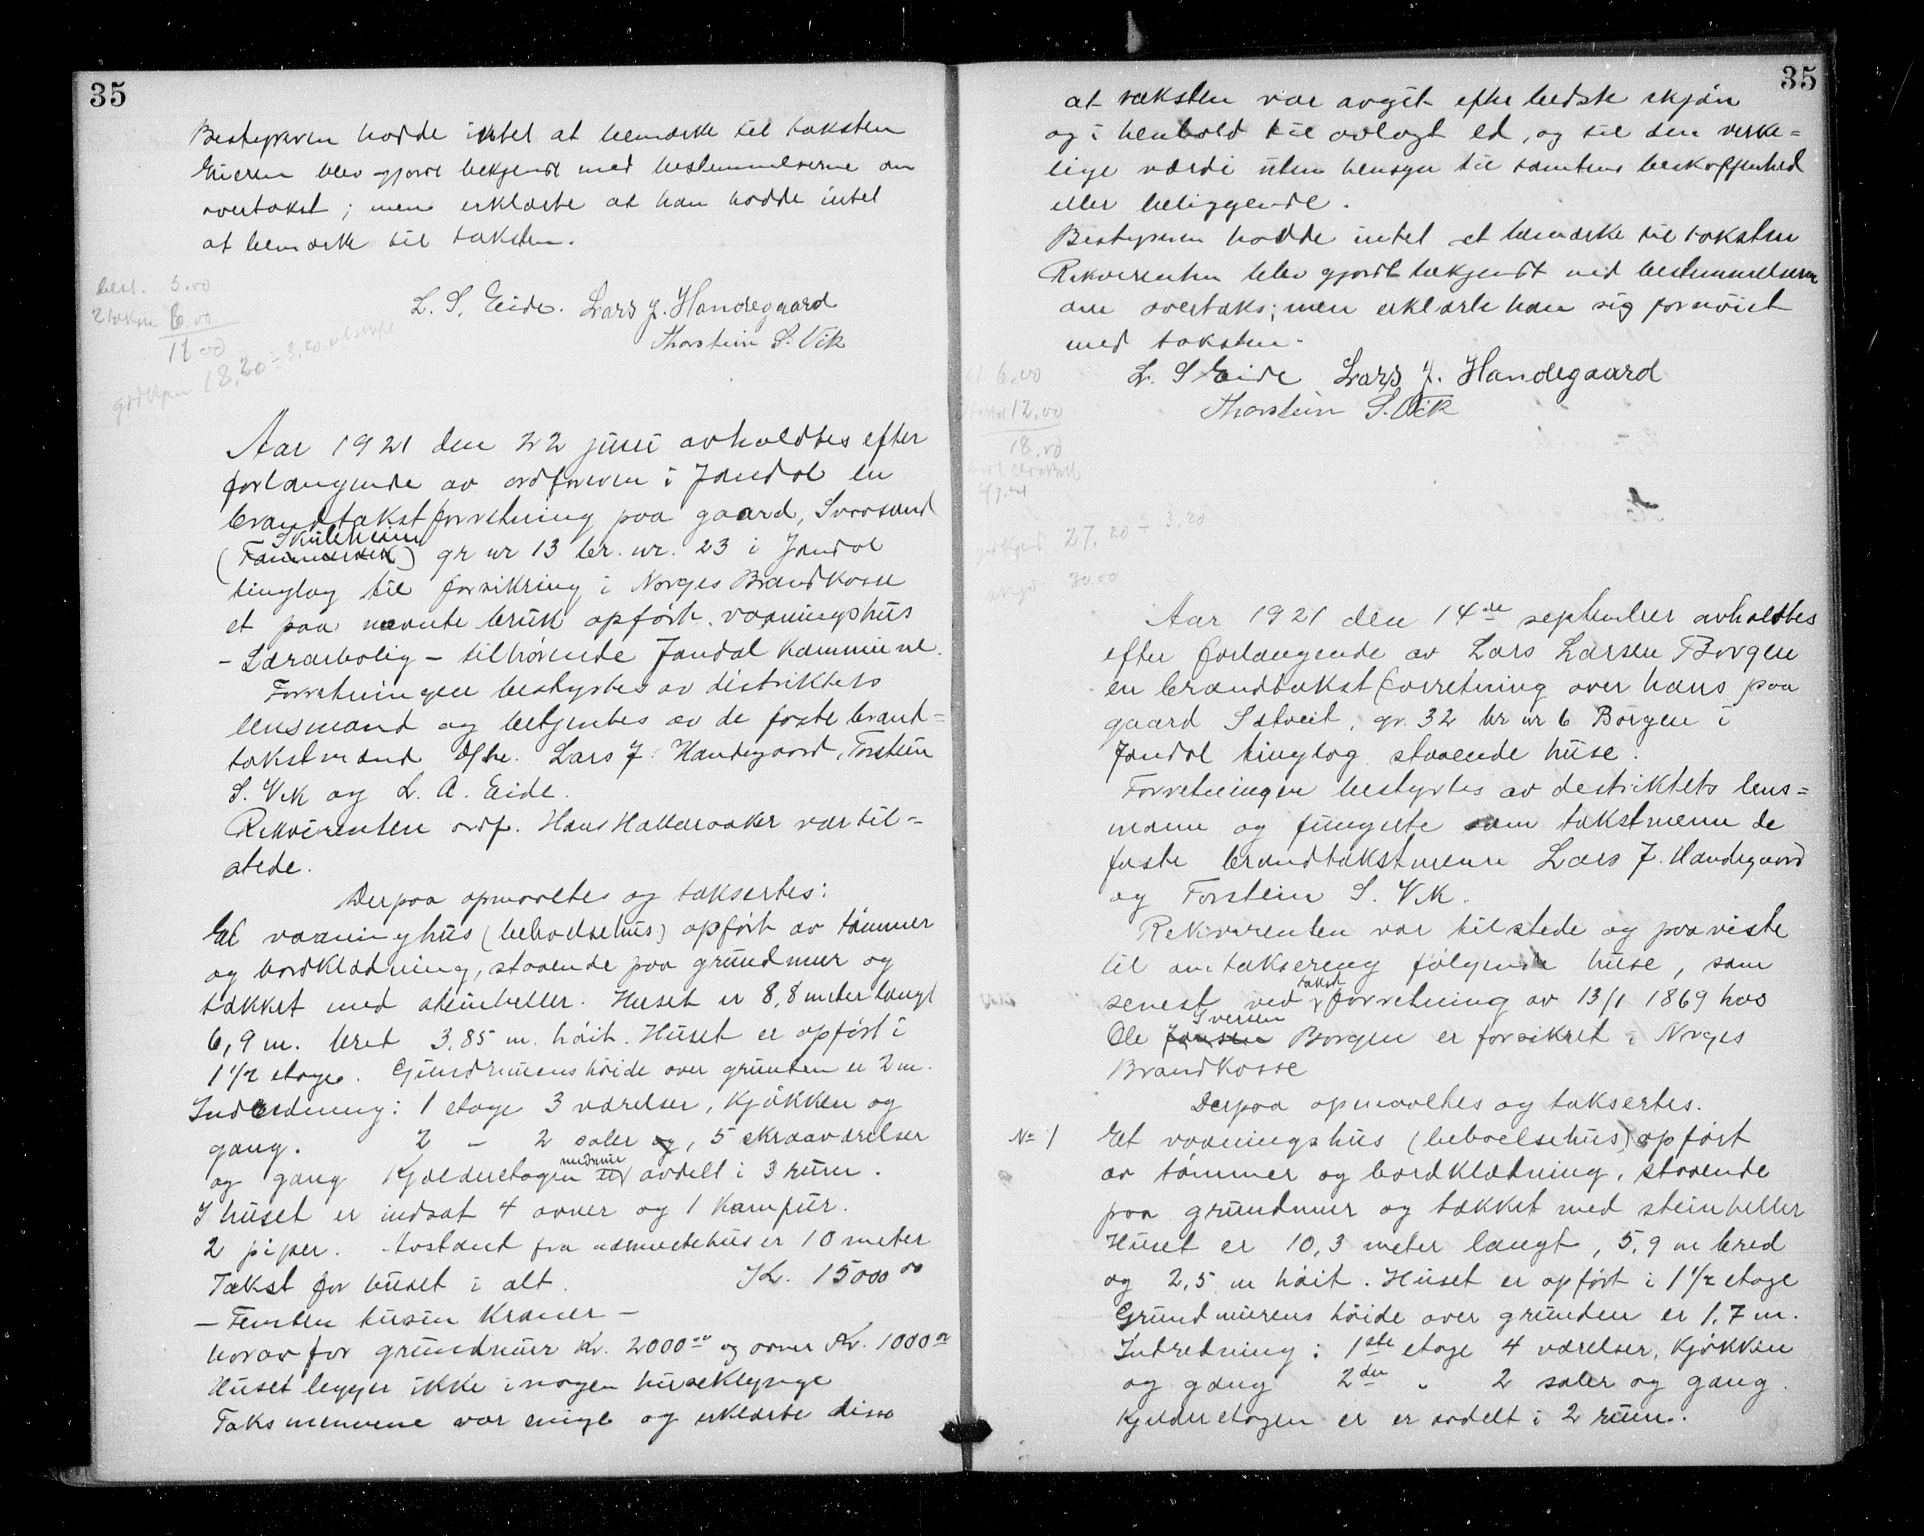 35
Bestyreren hadde intet at bemærke til taksten
Eieren blev gjort bekjendt med bestemmelserne om
overtakst; men erklærte at han hadde intet
at bemærke til taksten.
best. 5.00
2 takstm 6.00
11.00
godkjen 18,20 ÷ 3,20
L. S. Eide. Lars J. Handegaard
Thorstein S. Vik
Aar 1921 den 22 juni avholdtes efter
forlangende av ordføreren i Jondal en
brandtakstforretning paa gaard, Svaasand
Skuleheim
( ) gr nr 13 br. nr. 23 i Jondal
tinglag til forsikring i Norges Brandkasse
et paa nævnte bruk opført vaaningshus
- Lærarbolig - tilhørende Jondal kommune.
Forretningen bestyrtes av distriktets
lensmand og betjentes av de faste brand=
takstmænd Lars J. Handegaard, Torstein
S. Vik og L. A. Eide.
Rekvirenten ordf. Hans Hallaraaker var til=
stede.
Derpaa opmaaltes og taksertes:
Et vaaninghus (beboelsehus) opført av tømmer
og bordklædning, staaende paa grundmur og
tækket med steinheller. Huset er 8,8 meter langt
6,9 m. bret 3,85 m. høit. Huset er opført i
1 1/2 etage. Gundmurens høide over grunten er 2 m.
Indredning: 1 etage 3 værelser, kjøkken og
gang. 2 - 2 saler og, 5 skraaværelser
nedmur
og gang Kjelderetagen avdelt i 3 rum.
I huset er indsat 4 ovner og 1 kamfur.
2 piper. Avstand fra nærmestehus er 10 meter
Takst for huset i alt. Kr. 15000 00
- Femten tusen Kroner -
horav for grundmur Kr. 2000 00 og ovner Kr. 1000 00
Huset legger ikke i nogen huseklynge
Taksmennene var enige og erklærte disse
35
at taksten var avgit efter bedste skjøn
og i henhold til avlagt ed, og til den verke=
lige værdi uten hensyn til tomtens beskaffenhed
eller beliggende.
Bestyreren hadde intet at bemærke til taksten
Rekvirenten blev gjort bekjendt med bestemmelserne
om overtaks; men erklærte han sig fornøiet
med taksten.
6.00
12.00
18.00
47.20
27.20 ÷ 3,20
30.00
L. S Eide Lars J. Handegaard
Thorstein S. Vik
Aar 1921 den 14de september avholdtes
efter forlangende av Lars Larsen Borgen
en brandtakstforretning over hans paa
gaard Sætveit, gr. 32 br nr 6 Borgen i
Jondal tinglag staaende huse.
Forretningen bestyrtes av destriktets lens=
mann og fungerte som takstmenn de
faste brandtakstmenn Lars J. Handegaard
og Torstein S. Vik.
Rekvirenten var tilstede og paaviste
til omtaksering følgende huse, som
takst
senest ved forretning av 13/1 1869 hos
Iversen
Ole Jansen Borgen er forsikret i Norges
Brandkasse
Derpaa opmaaltes og taksertes.
No 1 Et vaaningshus (beboelsehus) opført
av tømmer og bordklædning, staaende
paa grundmur og tækket med steinheller
Huset er 10,3 meter langt, 5,9 m bred
og 2,5 m høit. Huset er opført i 1 1/2 etage
Grundmurens høide over grunden er 1,7 m.
Indredning: 1ste etage 4 værelser, kjøkken
og gang 2den " 2 saler og gang.
Kjelderetagen er er avdelt i 2 rum.